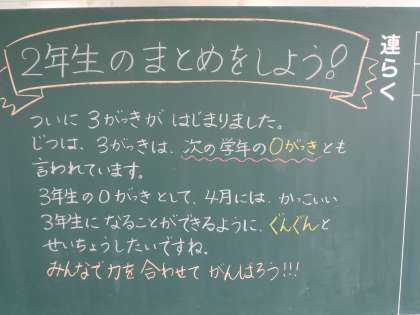 2年生のまとめをしよう！
連らく
ついに３がっきが はじまりました。
じつは、３がっきは、次の学年の０がっきとも
言われています。
３年生の０がっきとして、４月には、かっこいい
３年生に なることが できるように、ぐんぐんと
せいちょうしたいですね。
みんなで力を合わせて がんばろう!!!